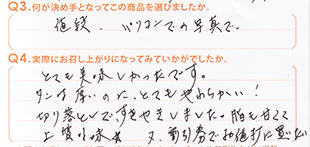 Q3.何が決め手となってこの商品を選びましたか。
値段、パソコンでの写真で。
Q4.実際にお召し上がりになってみていかがでしたか。
とても美味しかったです。
タンは厚いのに、とてもやわらかい!
切り落としで、すきやきしました。脂も甘くて
上質な味 又、割引券でお値打に買いたい